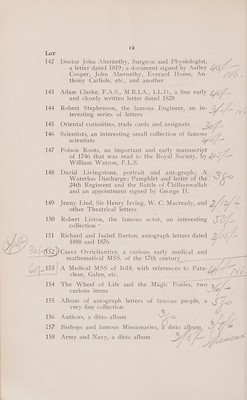 14
Lot
142 Doctor John Abernethy, Surgeon and Physiologist,
a letter dated 1819; a document signed by Astley
Cooper, John Abernethy, Everard Home, An-
thony Carlisle, etc., and another
143 Adam Clarke, F.A.S., M.R.I.A., LL.D., a fine early
and closely written letter dated 1828
144 Robert Stephenson, the famous Engineer, an in-
teresting series of letters
145 Oriental curiosities, trade cards and assignats
146 Scientists, an interesting small collection of famous
scientists
147 Poison Roots, an important and early manuscript
of 1746 that was read to the Royal Society, by
William Watson, F.L.S.
148 David Livingstone, portrait and autograph; A
Waterloo Discharge; Pamphlet and letter of the
24th Regiment and the Battle of Chillianwallah
and an appointment signed by George II.
149 Jenny Lind, Sir Henry Irving, W. C. Macready, and
other Theatrical letters
150 Robert Liston, the famous actor, an interesting
collection
151 Richard and Isabel Burton, autograph letters dated
1888 and 1876
152 Casus Ortichianticc, a curious early medical and
mathematical MSS. of the 17th century
153 A Medical MSS of 1618, with references to Para-
clese, Galen, etc.
154 The Wheel of Life and the Magic Ponies, two
curious items
155 Album of autograph letters of famous people, a
very fine collection
156 Authors, a ditto album
157 Bishops and famous Missionaries, a ditto album
158 Army and Navy, a ditto album